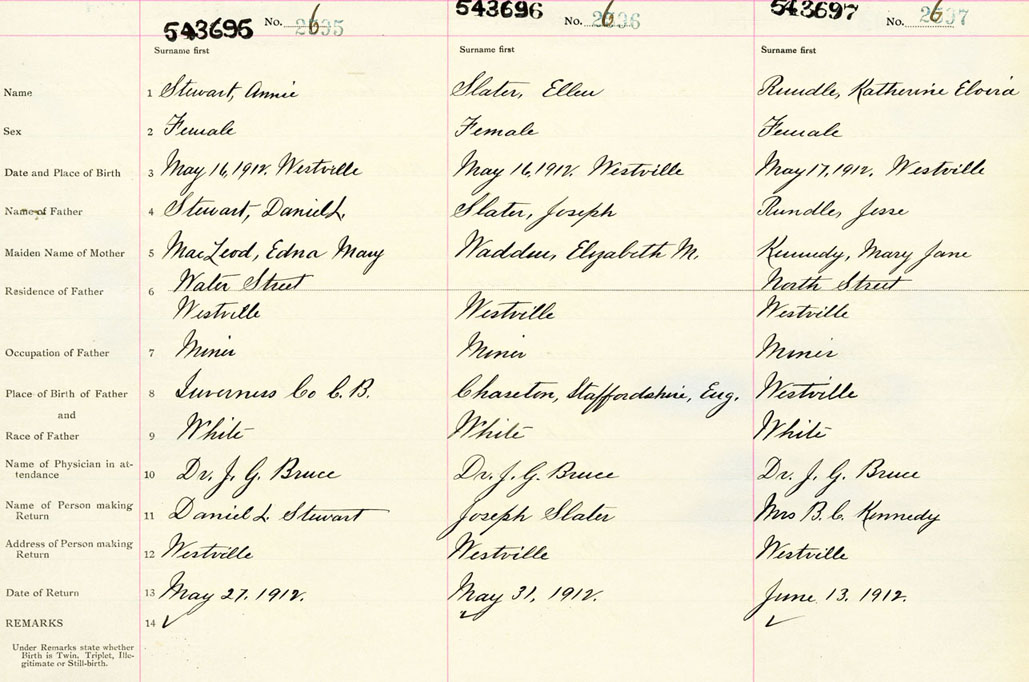 543695 No. 2635 543696 No. 2636 543697 No. 2637
Surname first Surname first Surname first
Name 1 Stewart, Annie Slater, Ellen Rundle, Katherine Elvira
Sex 2 Female Female Female
Date and Place of Birth 3 May 16, 1912. Westville May 16, 1912. Westville May 17, 1912. Westville
Name of Father 4 Stewart, Daniel L. Slater, Joseph Rundle, Jesse
Maiden Name of Mother 5 MacLeod, Edna Mary Wadden, Elizabeth M. Kennedy, Mary Jane
Water Street North Street
Residence of Father 6
Westville Westville Westville
Occupation of Father 7 Miner Miner Miner
Place of Birth of Father 8 Inverness Co C.B. Chaseton, Staffordshire, Eng. Westville
and
Race of Father 9 White White White
Name of Physician in at-
tendance 10 Dr. J. G. Bruce Dr. J. G. Bruce Dr. J. G. Bruce
Name of Person making
Return 11 Daniel L. Stewart Joseph Slater Mrs B. C. Kennedy
Address of Person making
Return 12 Westville Westville Westville
Date of Return 13 May 27. 1912. May 31. 1912. June 13. 1912.
REMARKS 14 ✓ ✓ ✓
Under Remarks state whether
Birth is Twin, Triplet, Ille-
gitimate or Still-birth.